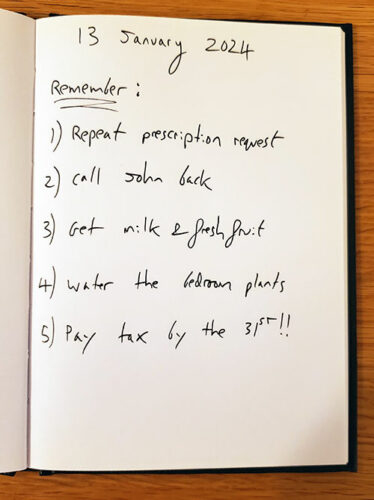 13 January 2024
Remember:
1) Repeat prescription request
2) Call John back
3) Get milk & fresh fruit
4) Water the bedroom plants
5) Pay tax by the 31st!!